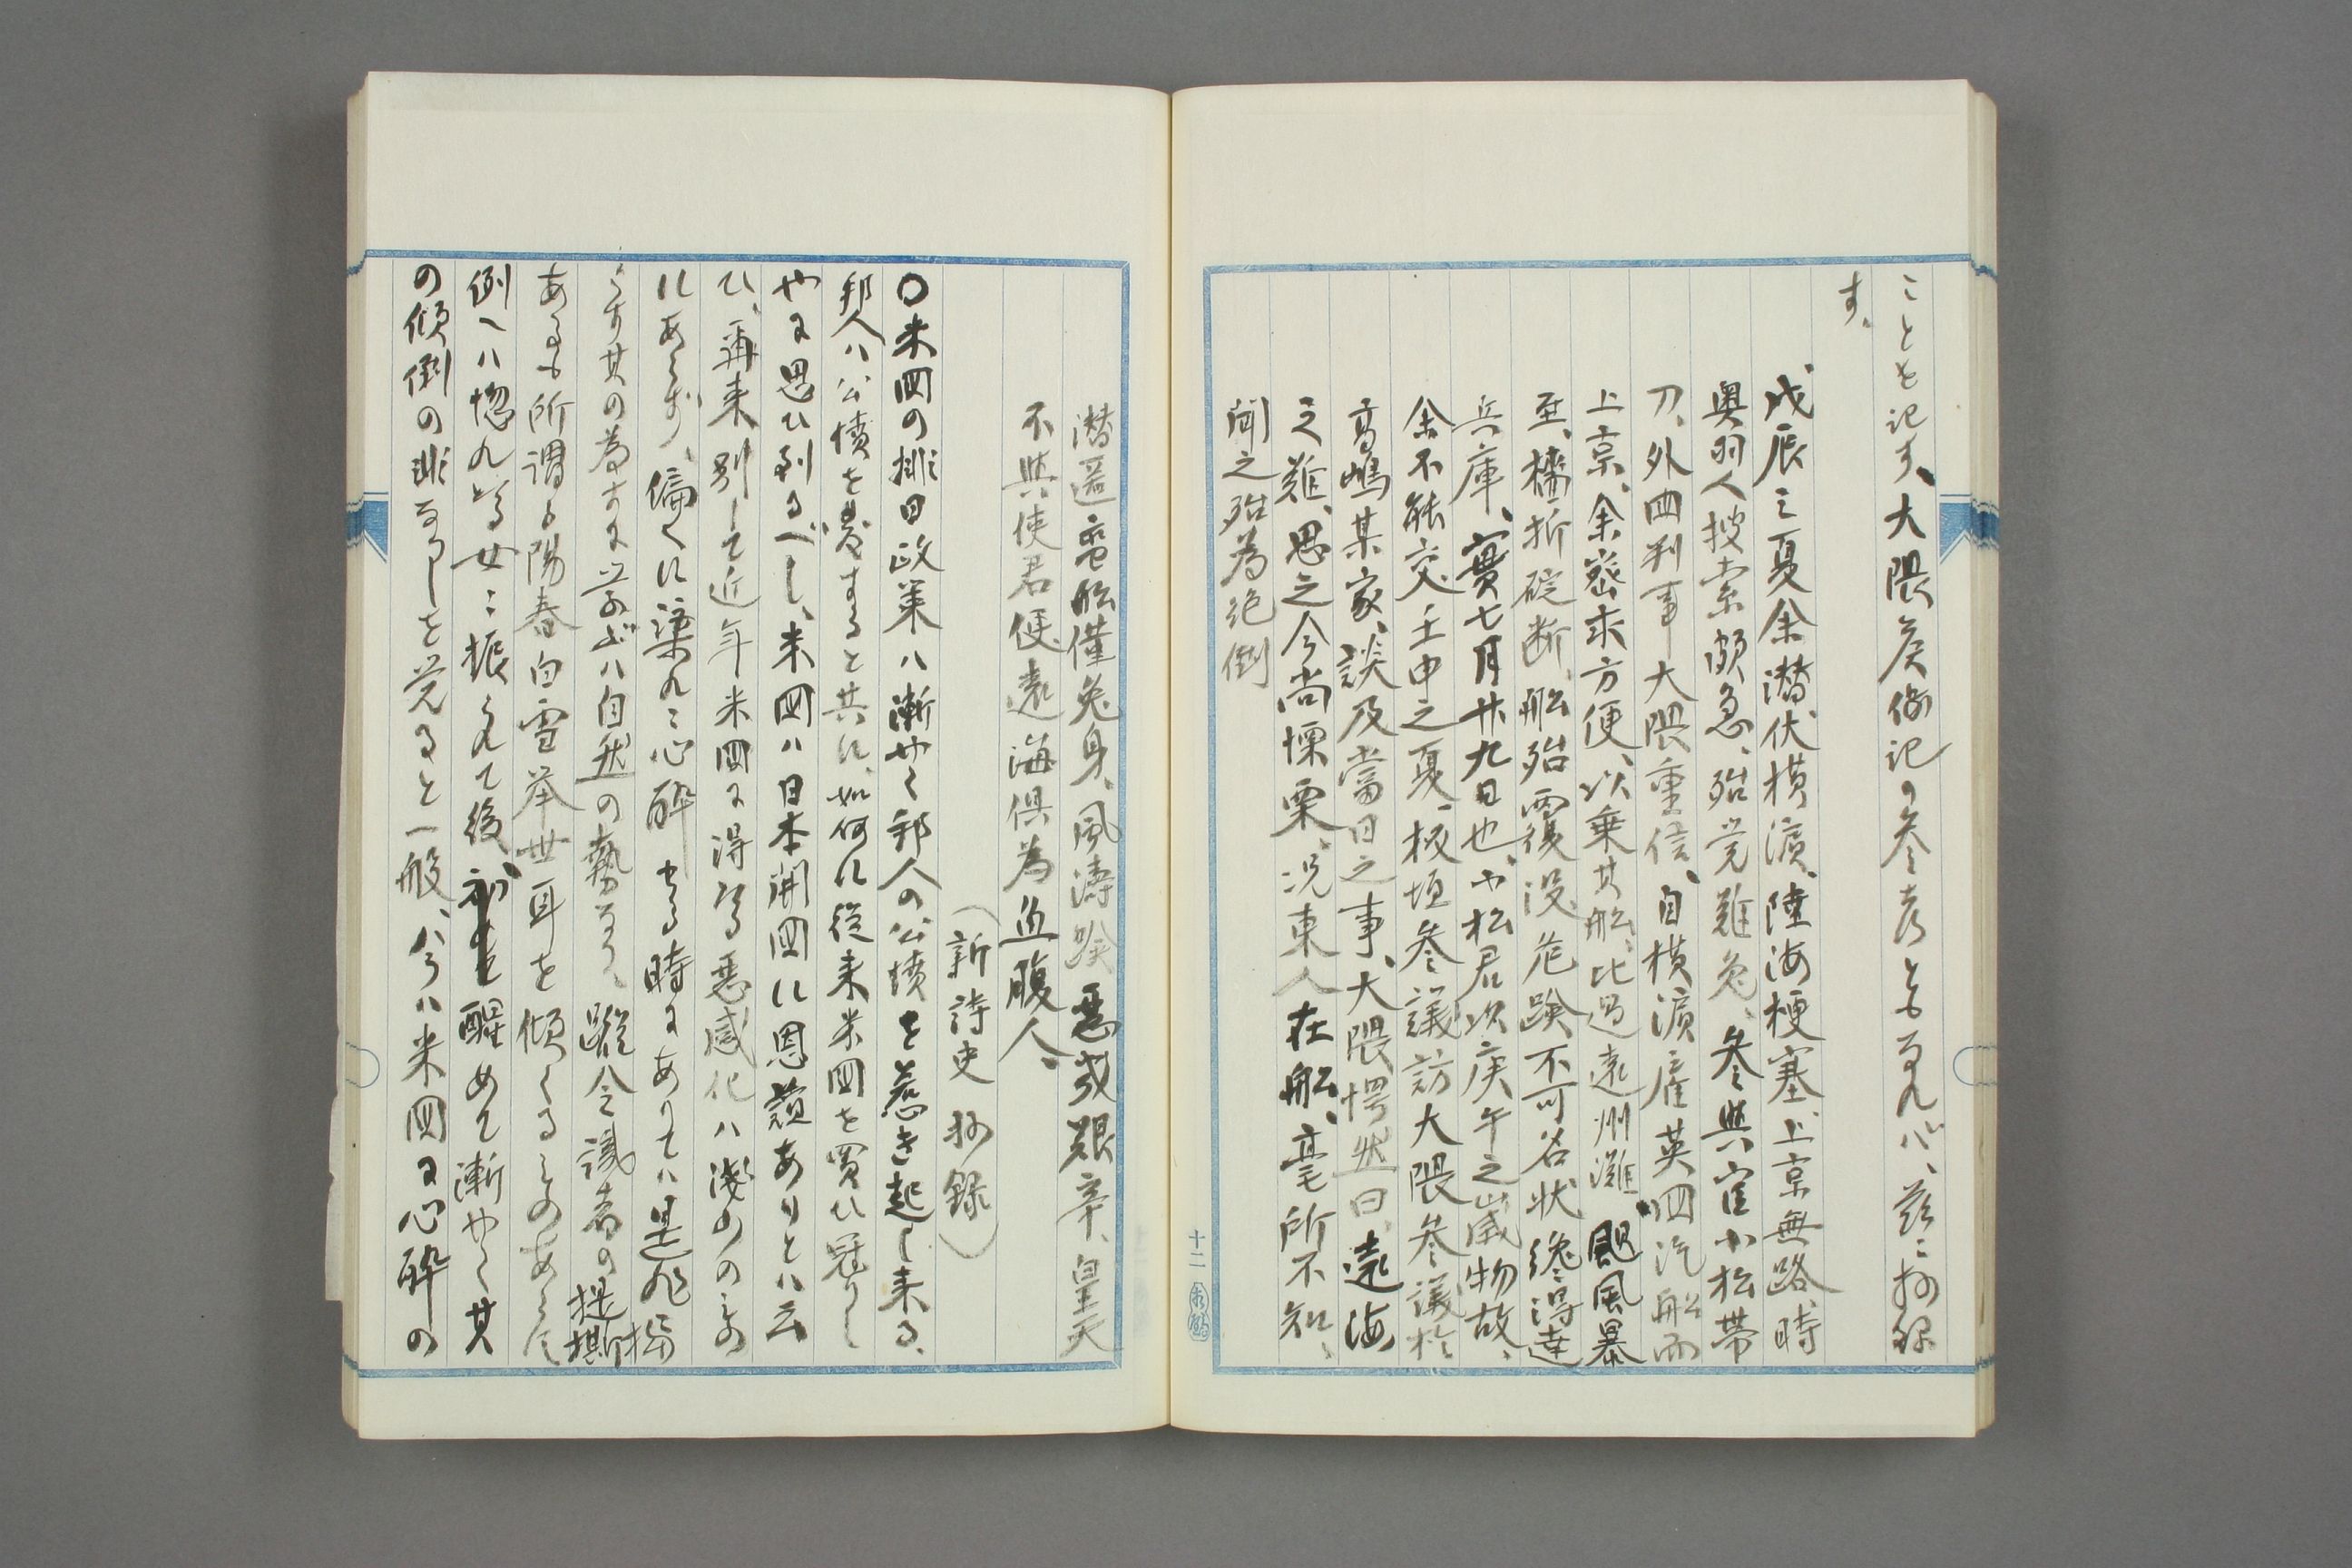 ことを記す、大隈侯傳記の参考ともなれバ、茲ニ抄録
す、
戊辰之夏余潜伏横濱、陸海梗塞、上京無路、時
奥羽人捜索頗急、殆覚難免、参與官小松帯
刀、外国判事大隈重信、自横濱雇英国汽船而
上京、余密求方便、以乗其船、比過遠州灘、颶風暴
至、檣折碇断、船殆覆没、危険不可名状、纔得達
兵庫、實七月廿九日也、小松君次庚午之歳物故、
余不能交、壬申之夏、板垣参議訪大隈参議於
高嶋某家、談及當日之事、大隈愕然曰、遠海
之難、思之今尚慄栗、況東人在船、毫所不知、
聞之殆為絶倒
潜逃蛮船僅免身、風濤険悪或艱辛、皇天
不與使君便、遠海倶為魚腹人、
(新詩史 抄録)
〇米国の排日政策ハ漸やく邦人の公憤を惹き起し来る、
邦人ハ公憤を発すると共に、如何に従来米国を買ひ冠りし
やに思ひ到るべし、米国ハ日本開国に恩義ありとハ云
ひ、再来別して近年米国に得たる悪感化ハ浅少のもの
にあらず、偏へに渠れニ心酔せる時にありてハ是非揚
らす其の為すに学ぶハ自然の勢なり、縦令識者の提撕
あるも所謂る陽春白雪挙世耳を傾くるものあらん
例へハ惚れたる女ニ振られて後、初を醒めて漸やく其
の傾倒の非なりしを覚ると一般、今ハ米国に心酔の